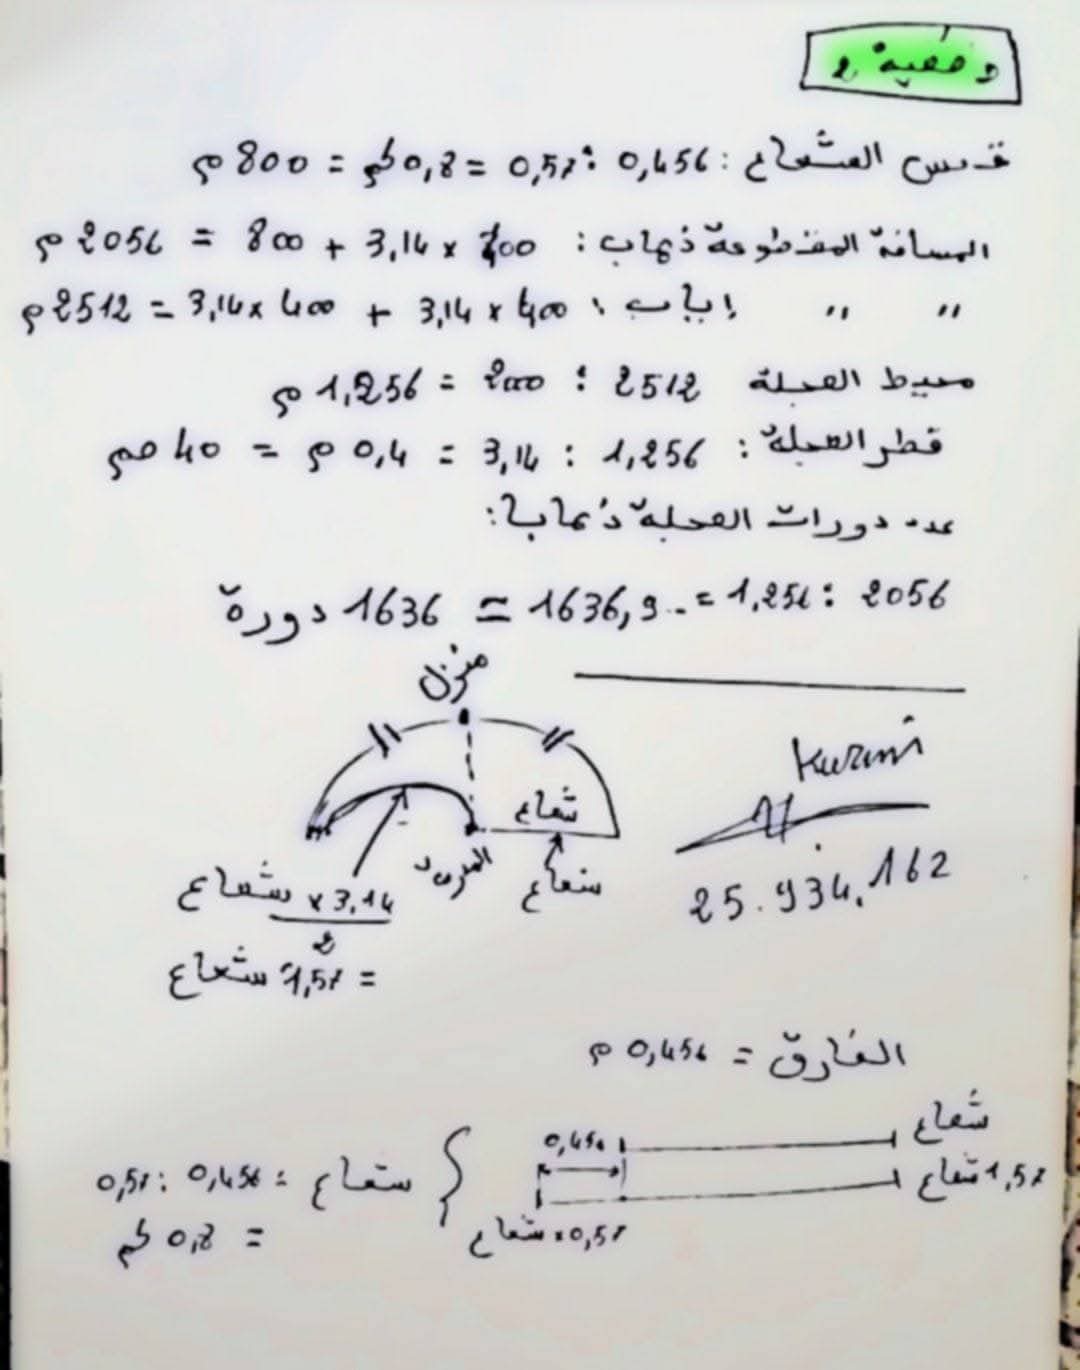 وضعية 2
قيس الشعاع : 0,456 : 0,57 = 0,8 كم = 800 م
المسافة المقطوعة ذهاب : 400 × 3,14 + 800 = 2056 م
" " إياب : 400 × 3,14 + 400 × 3,14 = 2512 م
محيط العجلة 2512 : 2000 = 1,256 م
قطر العجلة : 1,256 : 3,14 = 0,4 م = 40 صم
عدد دورات العجلة ذهابا :
2056 : 1,256 = 1636,9.. ≃ 1636 دورة
منزل
شعاع
شعاع
شعاع × 3,14
2
= 1,57 شعاع
25.934.162
الفارق = 0,456 م
شعاع
0,456
1,57 شعاع
0,57 × شعاع
شعاع = 0,456 : 0,57
= 0,8 كم